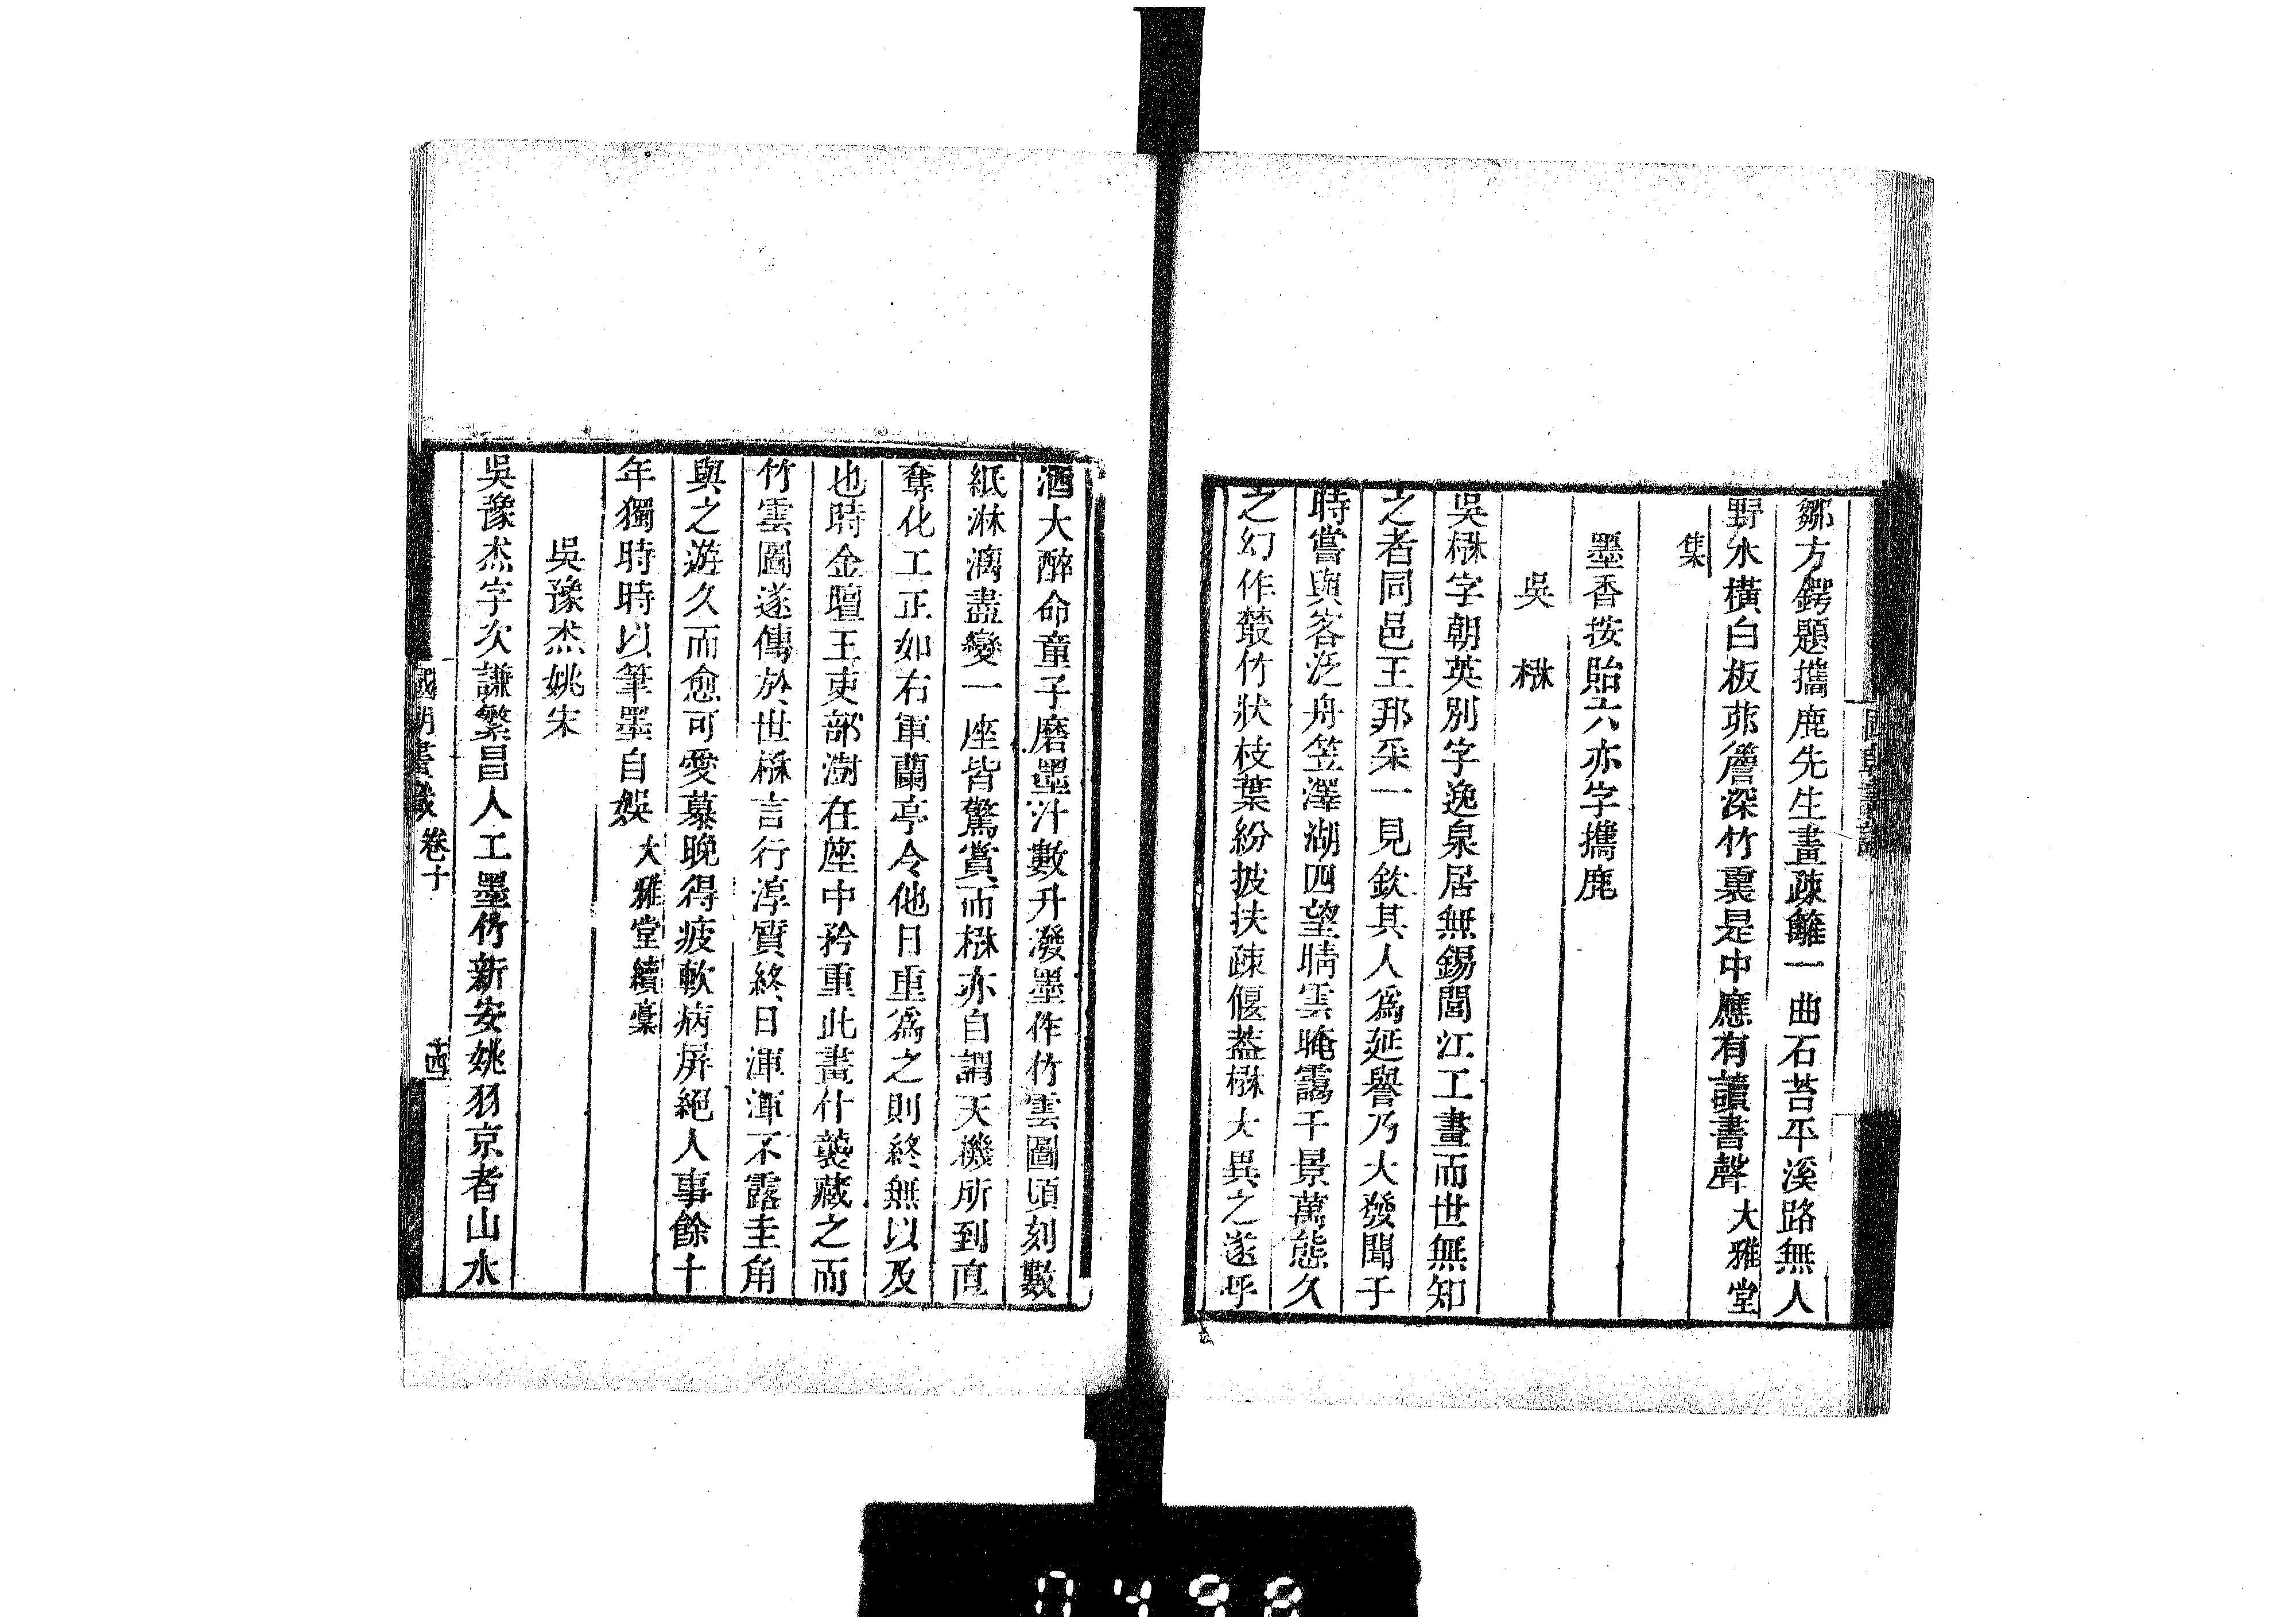 鄒方鍔題攜鹿先生畫疎籬一曲石苔平溪路無人
野水橫白板茆簷深竹裏是中應有讀書聲大雅堂
集
墨香按貽六亦字攜鹿
吳楙
吳楙字朝英別字逸泉居無錫閭江工畫而世無知
之者同邑王邦采一見欽其人爲延譽乃大發聞于
時嘗與客泛舟笠澤湖四望晴雲晻靄千景萬態久
之幻作叢竹狀枝葉紛披扶疎偃蓋楙大異之遂呼
酒大醉命童子磨墨汁數升潑墨作竹雲圖頃刻數
紙淋漓盡變一座皆驚賞而楙亦自謂天機所到直
奪化工正如右軍蘭亭令他日重爲之則終無以及
也時金壇王吏部澍在座中矜重此畫什襲藏之而
竹雲圖遂傳於世楙言行淳質終日渾渾不露圭角
與之游久而愈可愛慕晚得疲軟病屏絕人事餘十
年獨時時以筆墨自娛大雅堂續稾
吳豫杰姚宋
吳豫杰字次謙繁昌人工墨竹新安姚羽京者山水
國朝畫識卷十 十四
0498